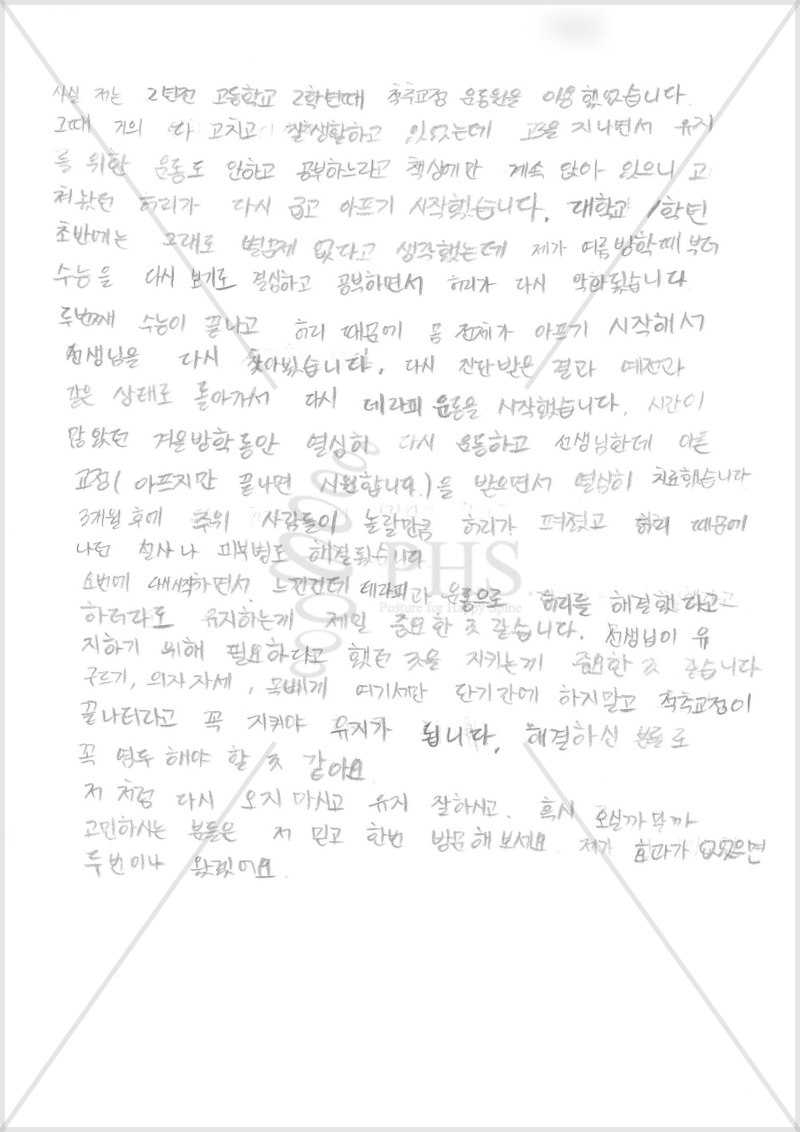 사실 저는 2년전 고등학교 2학년때 척추교정 운동원을 이용 했었습니다.
그때 거의 다 고치고 잘생활하고 있었는데 고3을 지나면서 유지
를 위한 운동도 안하고 공부하느라고 책상에만 계속 앉아 있으니 고
쳐놨던 허리가 다시 굽고 아프기 시작했습니다. 대학교 1학년
초반에는 그래도 별문제 없다고 생각했는데 제가 여름방학때부터
수능을 다시 보기로 결심하고 공부하면서 허리가 다시 악화됐습니다
두번째 수능이 끝나고 허리 때문에 몸 전체가 아프기 시작해서
선생님을 다시 찾아뵀습니다. 다시 진단받은 결과 예전과
같은 상태로 돌아가서 다시 테라피 운동을 시작했습니다. 시간이
많았던 겨울방학동안 열심히 다시 운동하고 선생님한데 아픈
교정(아프지만 끝나면 시원합니다.)을 받으면서 열심히 치료했습니다
3개월 후에 주위 사람들이 놀랄만큼 허리가 펴졌고 허리 때문에
나던 설사나 피부병도 해결됬습니다
요번에 하면서 느낀건데 테라피과 운동으로 허리를 해결했다고
하더라도 유지하는게 제일 중요한 것 같습니다. 선생님이 유
지하기 위해 필요하다고 했던 것을 지키는게 중요한 것 같습니다
구르기, 의자자세, 목베게 여기서만 단기간에 하지말고 척추교정이
끝나더라고 꼭 지켜야 유지가 됩니다. 해결하신 분들로
꼭 염두 해야 할 것 같아요
저 처럼 다시 오지 마시고 유지 잘하시고. 혹시 오실까 말까
고민하시는 분들은 저 믿고 한번 방문해 보세요. 제가 효과가 없었으면
두번이나 왔겠어요.
PHS
Posture for Happy Spine